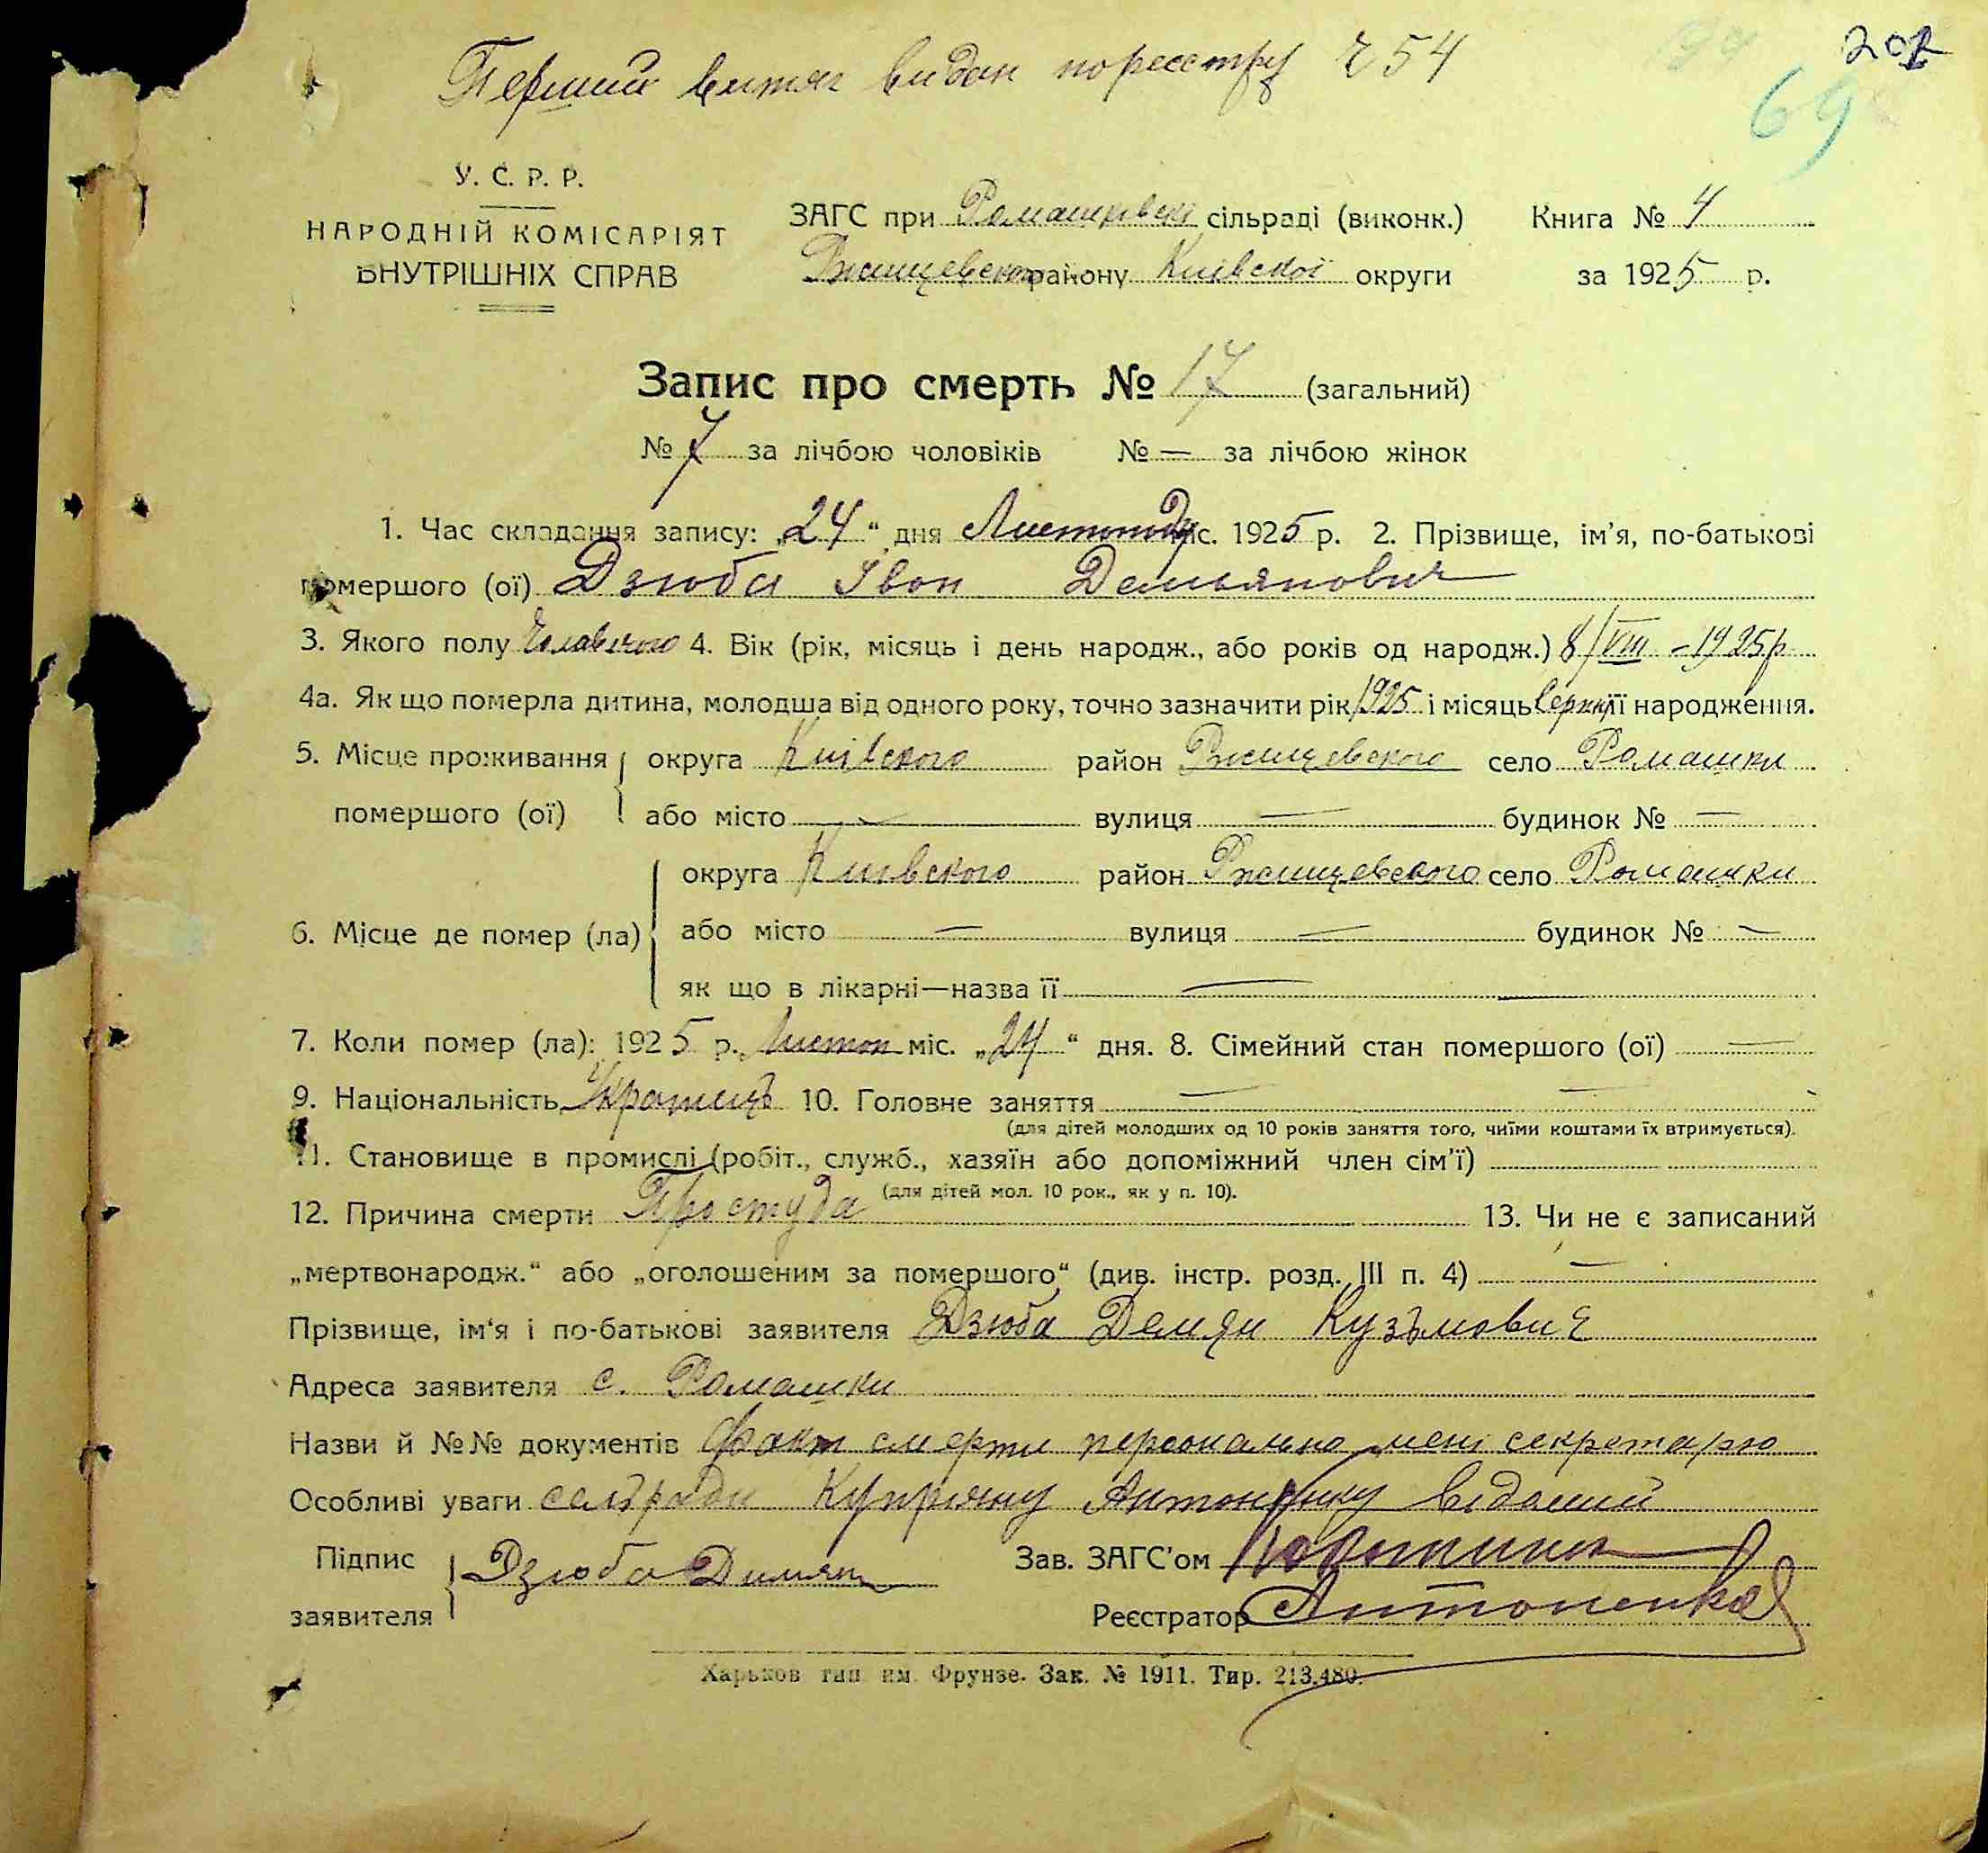 Перший витяг видан по реєстру Ч 54
202
69
У. С. Р. Р.
НАРОДНІЙ КОМІСАРІЯТ
ВНУТРІШНІХ СПРАВ
ЗАГС при Ромашківскі сільраді (виконк.) Книга № 4
Ржищевского району Київскої округи за 1925 р.
Запис про смерть № 17 (загальний)
№ 7 за лічбою чоловіків № — за лічбою жінок
1. Час складання запису: „24“ дня Листопаду міс. 1925 р. 2. Прізвище, ім'я, по-батькові
помершого (ої) Дзюба Іван Демьянович
3. Якого полу Чоловічого 4. Вік (рік, місяць і день народж., або років од народж.) 8/VIII – 1925 р
4а. Як що померла дитина, молодша від одного року, точно зазначити рік 1925 і місяць Серпн її народження.
5. Місце проживання округа Київского район Ржищевского село Ромашки
помершого (ої) або місто — вулиця — будинок № —
округа Київского район Ржищевского село Ромашки
6. Місце де помер (ла) або місто — вулиця — будинок № —
як що в лікарні—назва її —
7. Коли помер (ла): 1925 р. Листоп міс. „24“ дня. 8. Сімейний стан помершого (ої) —
9. Національність Українець 10. Головне заняття —
(для дітей молодших од 10 років заняття того, чиїми коштами їх втримується).
11. Становище в промислі (робіт., служб., хазяїн або допоміжний член сім'ї)
(для дітей мол. 10 рок., як у п. 10).
12. Причина смерти Простуда 13. Чи не є записаний
„мертвонародж.“ або „оголошеним за помершого“ (див. інстр. розд. III п. 4) —
Прізвище, ім'я і по-батькові заявителя Дзюба Демян Кузьмович
Адреса заявителя с. Ромашки
Назви й №№ документів Факт смерти персонально мені секретарю
Особливі уваги сельради Купріяну Антоненку відомий
Підпис заявителя Дзюба Димян Зав. ЗАГС'ом
Реєстратор Антоненко
Харьков тип им. Фрунзе. Зак. № 1911. Тир. 213.480.